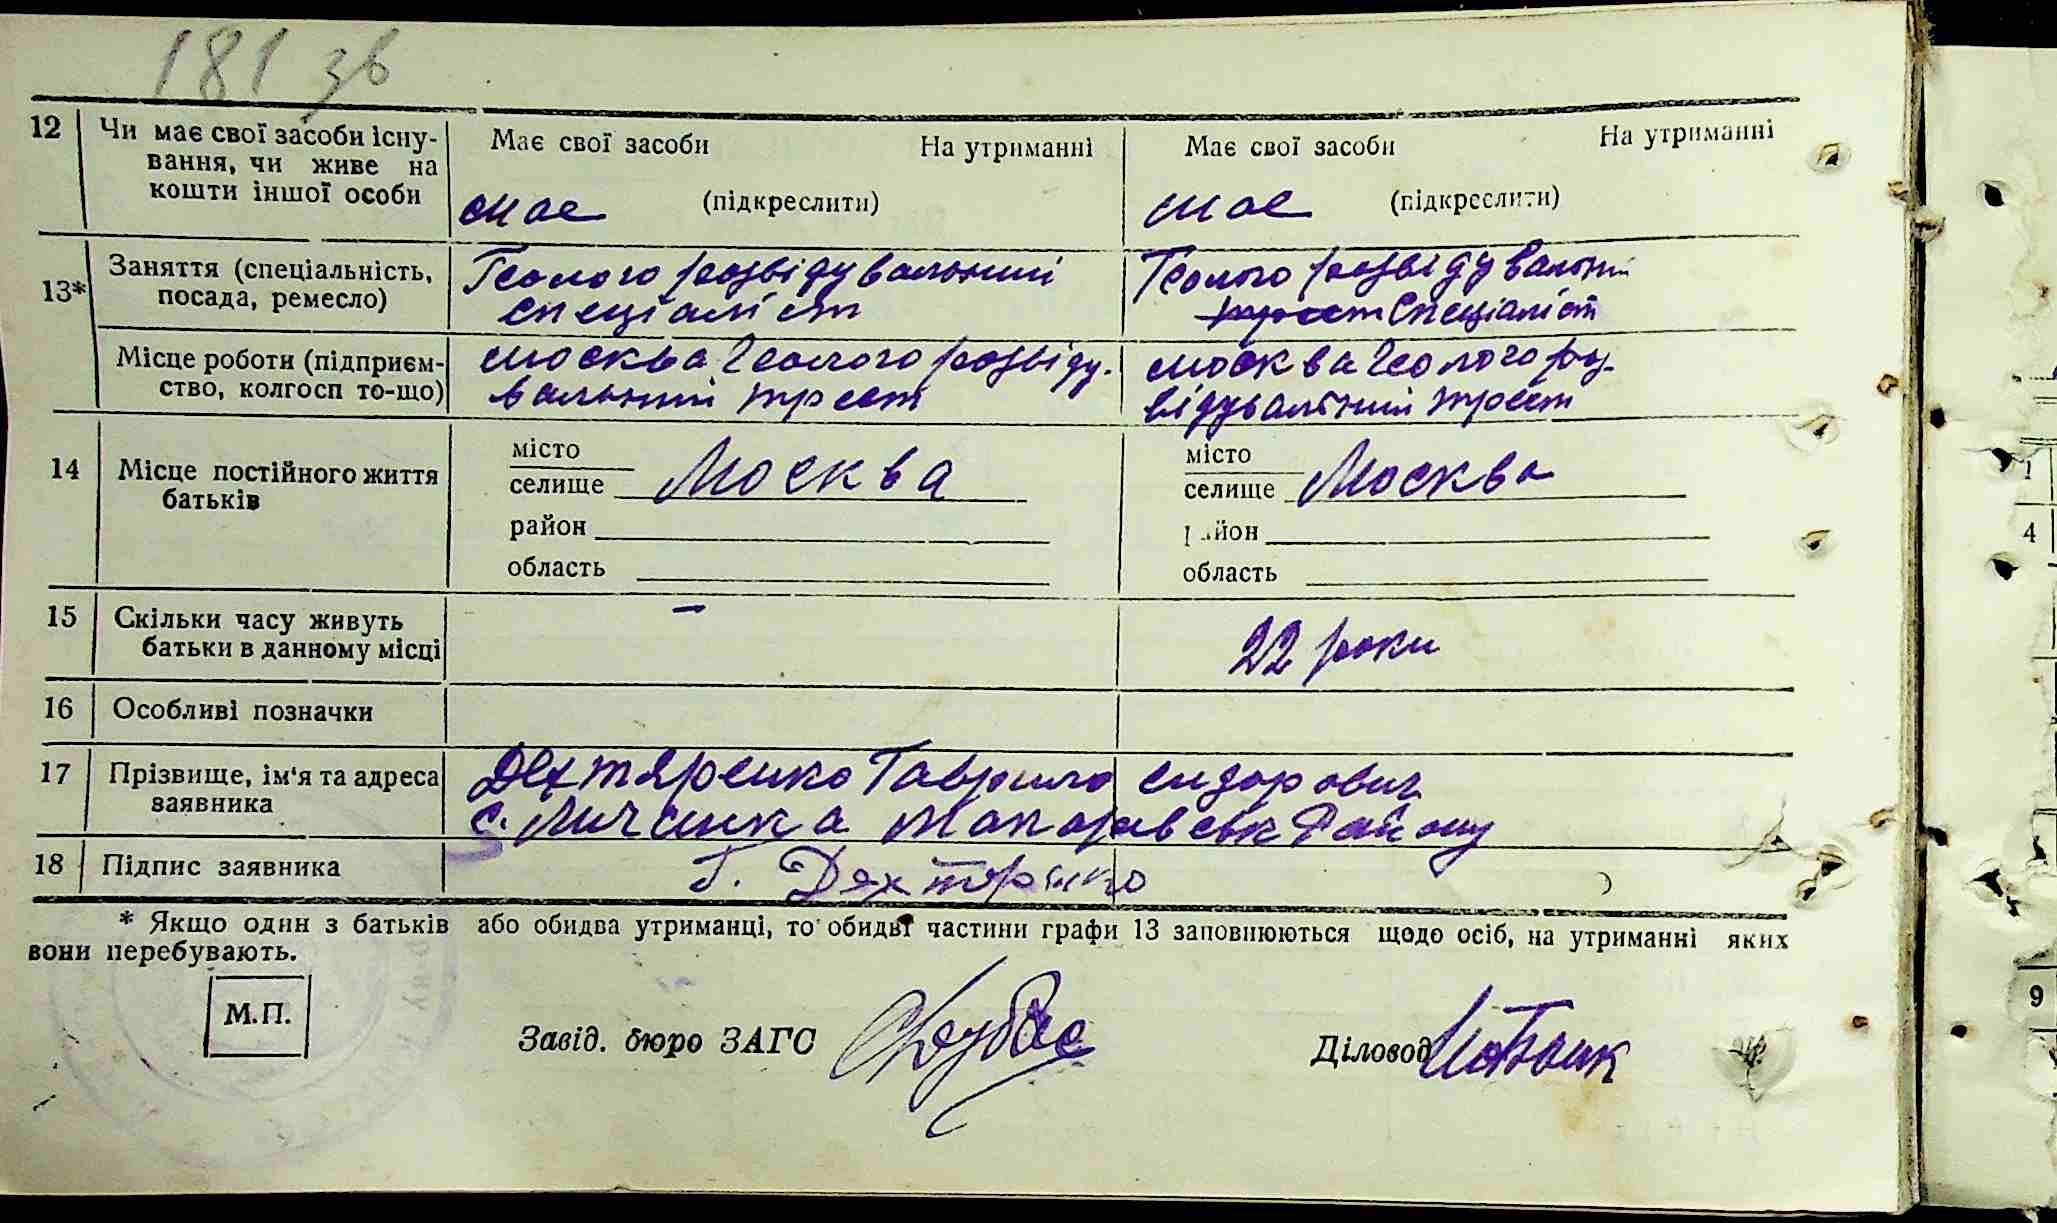 181 зв
12 Чи має свої засоби існу- Має свої засоби На утриманні Має свої засоби На утриманні
вання, чи живе на
кошти іншої особи має (підкреслити) має (підкреслити)
13* Заняття (спеціальність, Геолого розвідувальний Геолого розвідувальний
посада, ремесло) спеціаліст трест спеціаліст
Місце роботи (підприєм- Москва Геолого розвіду- Москва Геолого роз-
ство, колгосп то-що) вальний трест відувальний трест
14 Місце постійного життя місто Москва місто Москва
батьків селище селище
район район
область область
15 Скільки часу живуть –
батьки в данному місці 22 роки
16 Особливі позначки
17 Прізвище, ім'я та адреса Дехтяренко Гаврило Сидорович
заявника с. Мичинка Макаровськ Району
18 Підпис заявника Г. Дехторенко
* Якщо один з батьків або обидва утриманці, то обидві частини графи 13 заповнюються щодо осіб, на утриманні яких
вони перебувають.
М.П.
Завід. бюро ЗАГС Діловод
1
4
9